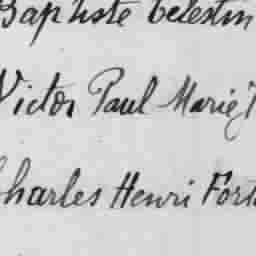 Baptiste Celestin
Victor Paul Marie
Charles Henri